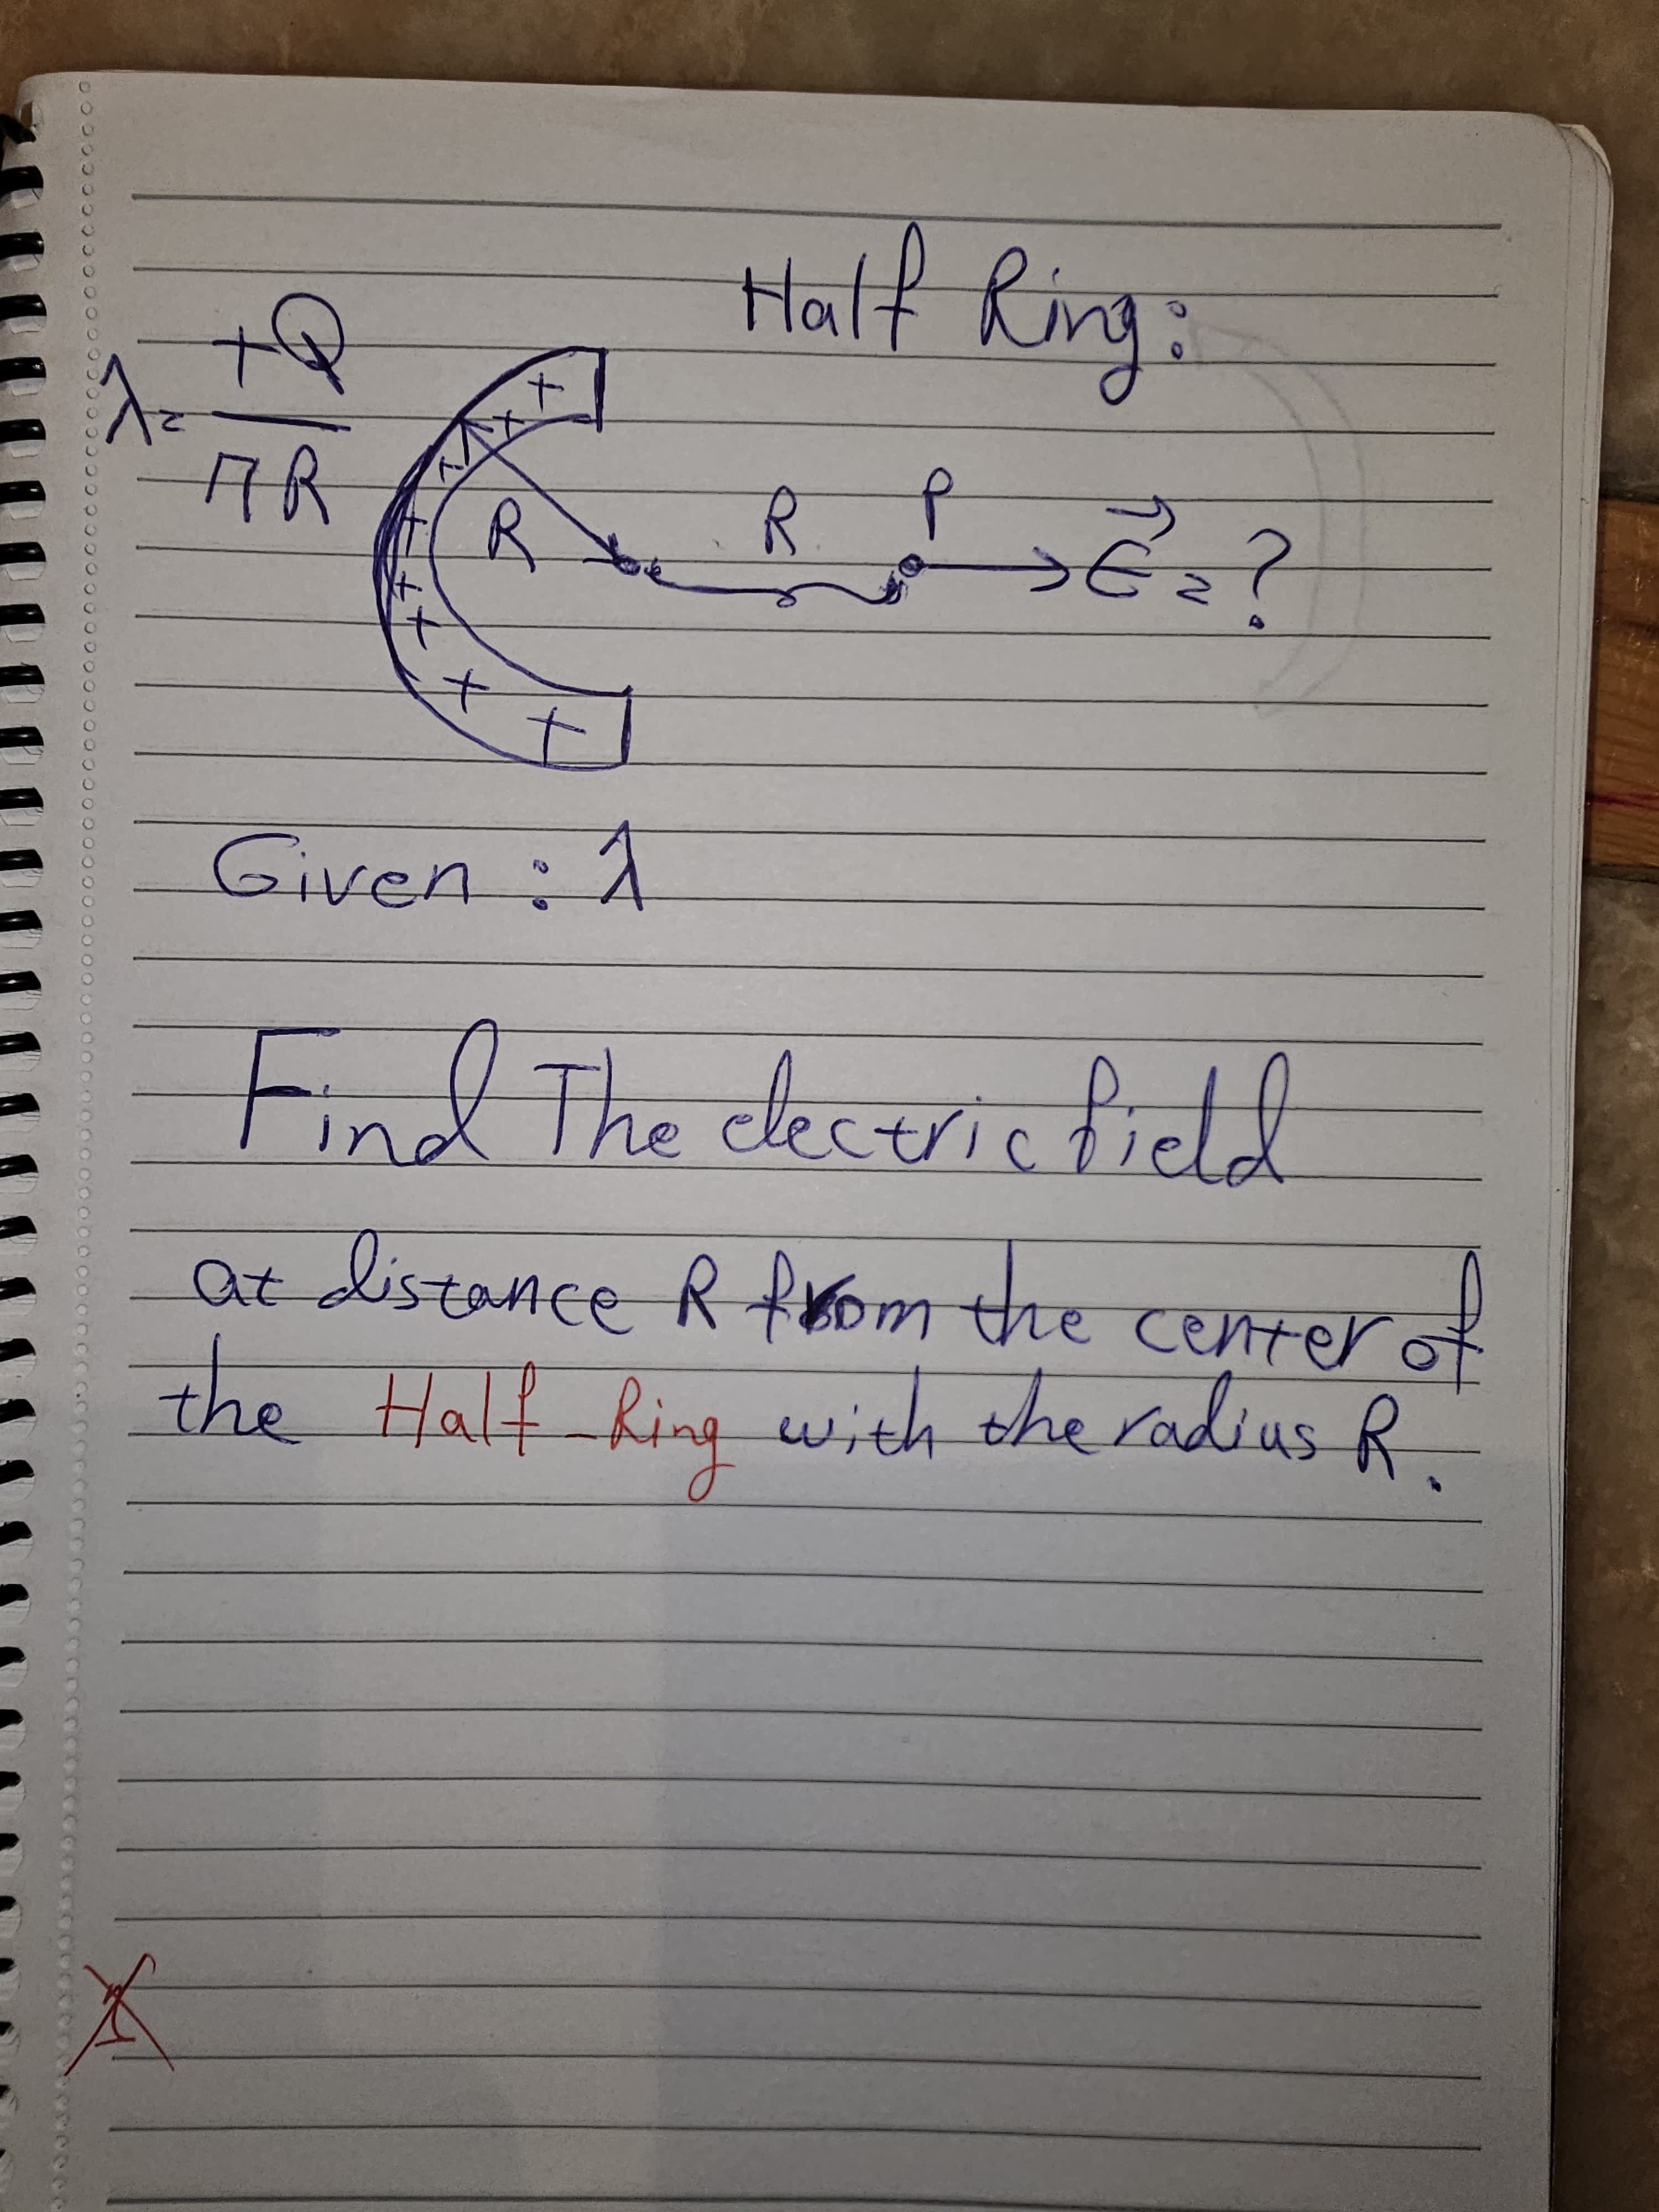 Half Ring:
λ = +Q / πR
R R P E⃗ = ?
Given : λ
Find The electric field
at distance R from the center of
the Half-Ring with the radius R.